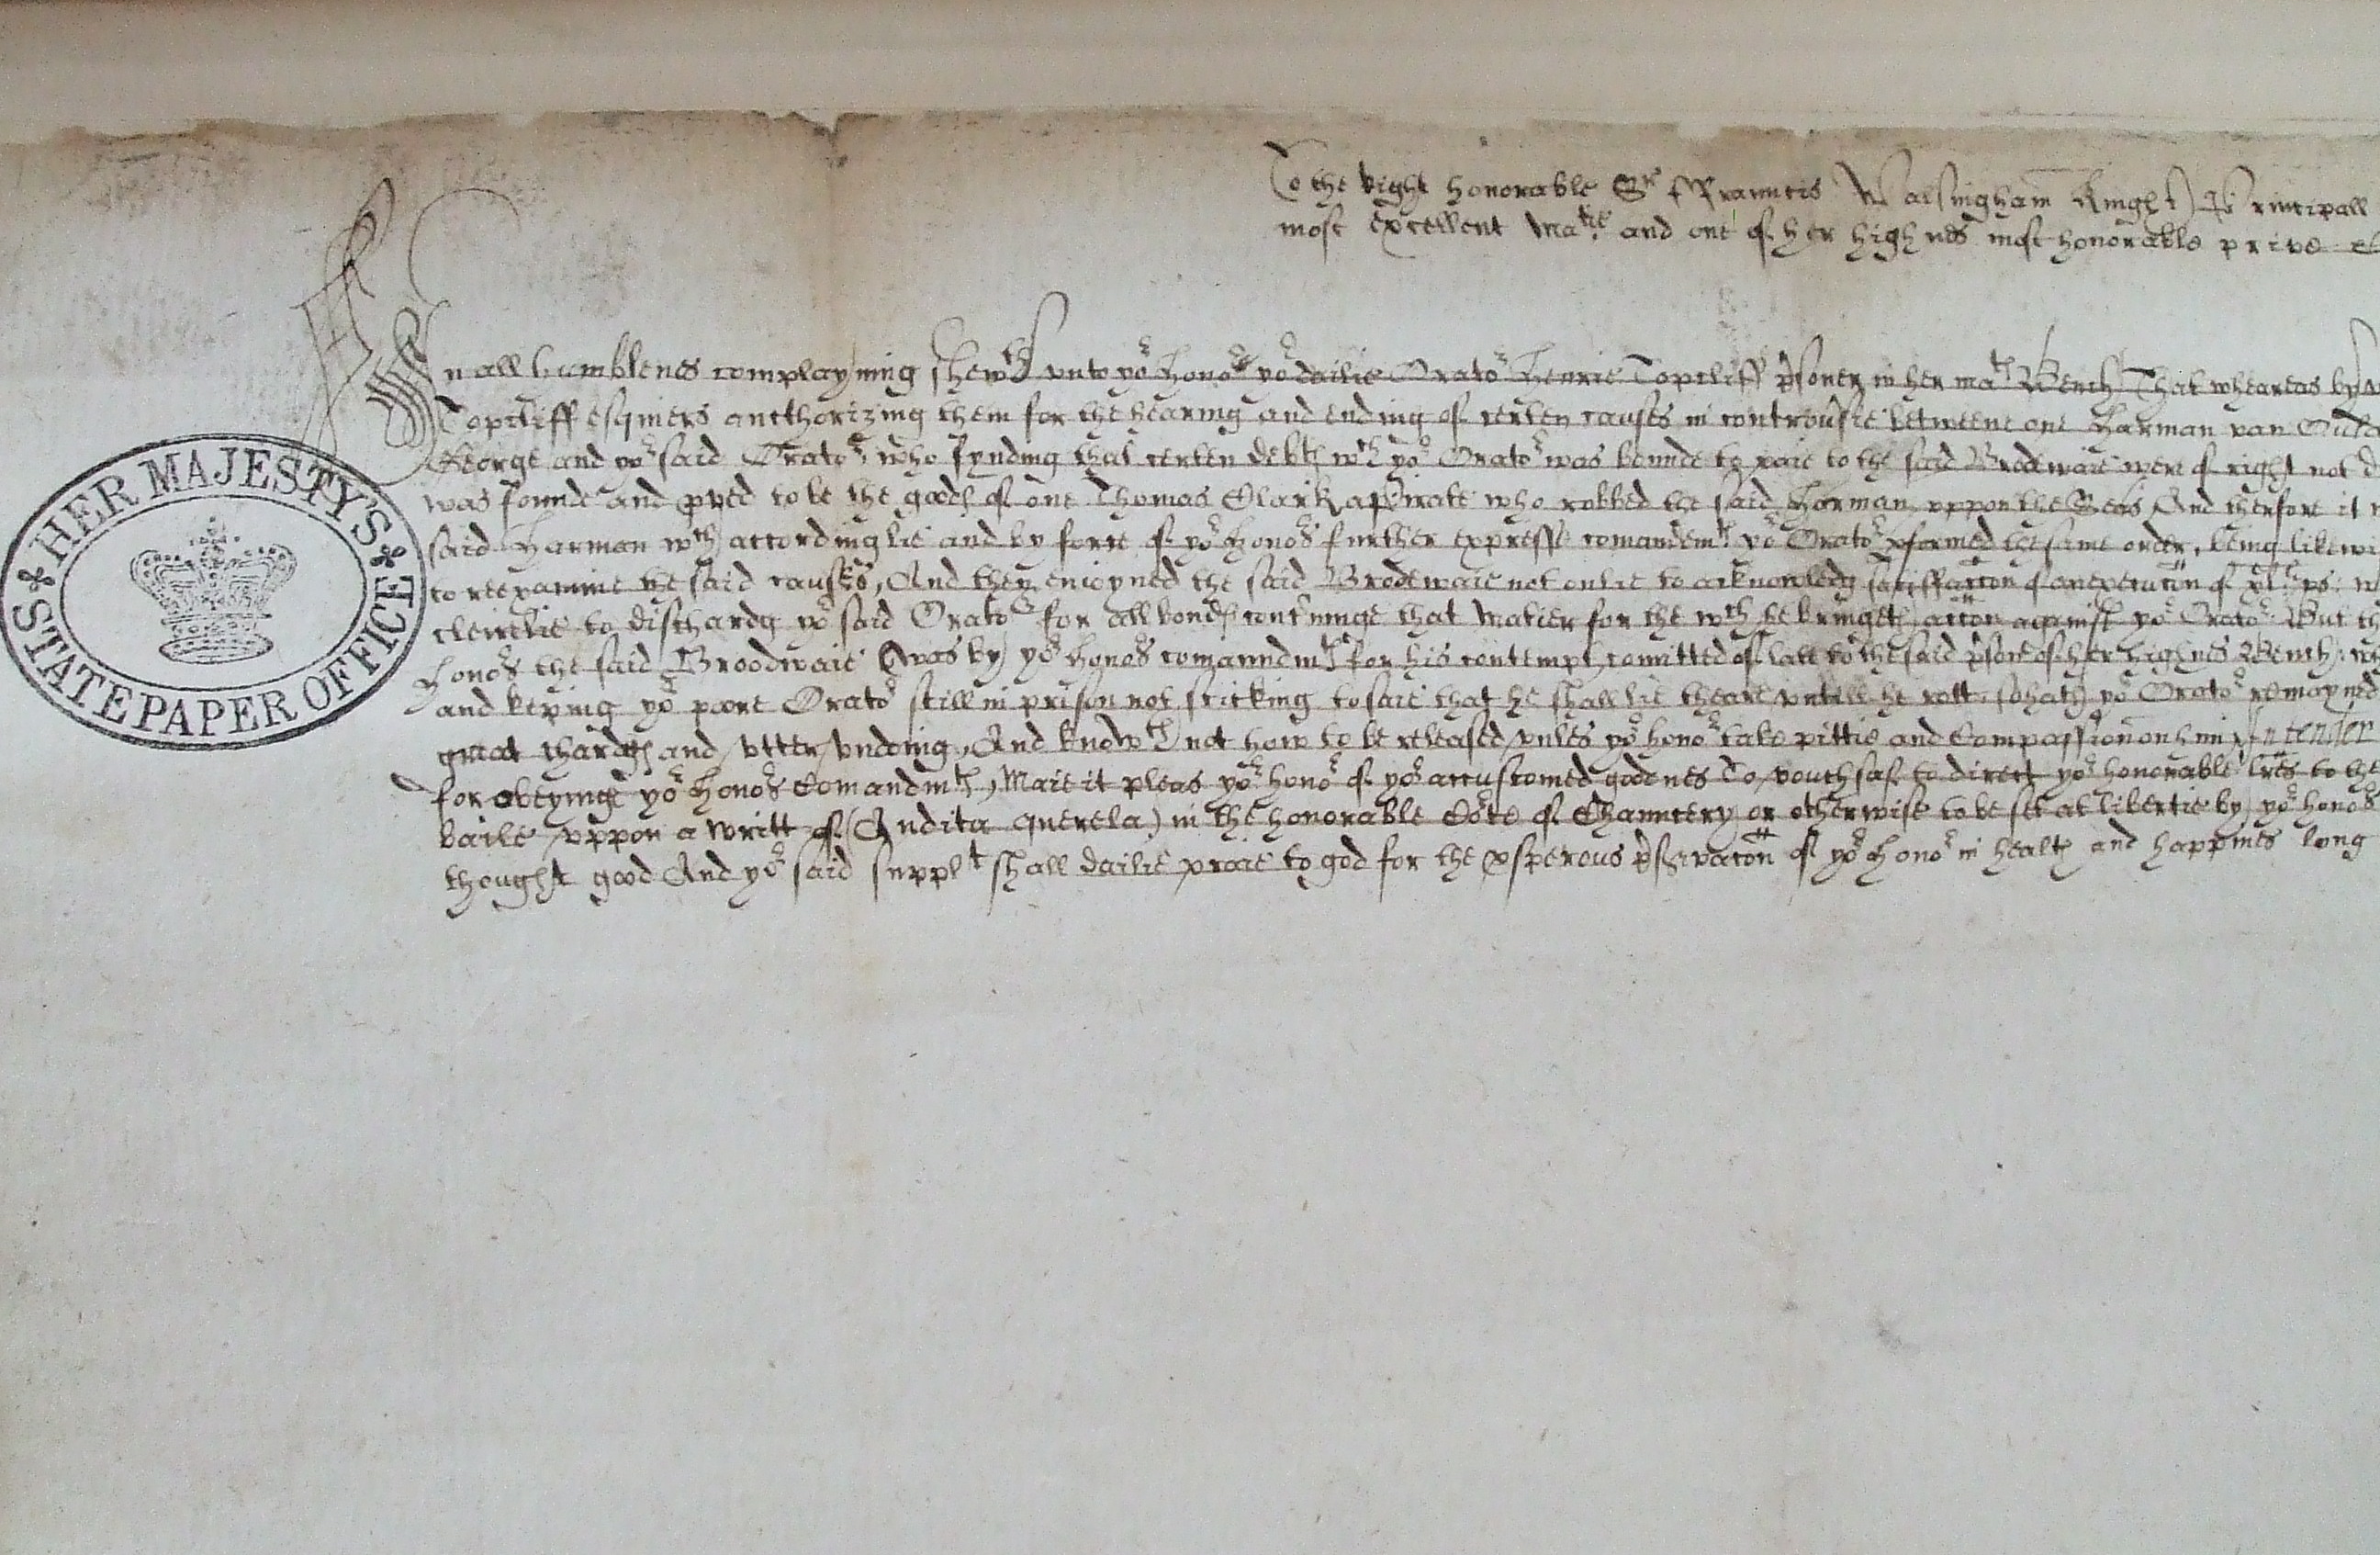 To the Right honorable Sr ffrauncis Walsingham Knight Principall
most excellent Matie and one of her highnes most honorable prive
In all humblenes complayning shewth vnto yor honor yor dailie Orator Henrie Topcliff prsoner in her mats Bench That wheareas by
Topcliff esquiers aucthorizing them for the hearing and ending of certen causes in controuersie betweene one Harman van
George and yor said Orator, who fynding that certen debts wch yor Orator was bounde to paie to the said Brodewaie were of right not
was founde and proved to be the goods of one Thomas Clark a Pirate who robbed the said Harman vppon the Seas And therfore it
said Harman wth accordinglie and by force of yor Honors further expresse comandemt yor Orator pformed the same order, being likewi
to reexamine the said causes, And then enioyned the said Brodewaie not onlie to acknowledg satisffaccon of an execucon of
clerelie to dischardg yor said Orator for all bonds that Matter for the wch he bringeth accon against yor Orator But
Honors the said Broodwaie (was by) yor Honors comaundmt for his contempt comitted of late to the said prsone of her highnes Bench,
and keping yor poore Orator still in prison not sticking to saie that he shall lie theare vntill he rott, so hath yor Orator remayned
great chardgs and vtter vndoing, And knowth not how to be released vnles yor honor take pittie and Compassion on him In tender
for obeying yor Honors Comandmt, Maie it pleas yor honor of yor accustomed goodnes To vouchsaf to direct yor honorable lres to the
baile vppon a Writt of (Audita Querela) in the honorable Corte of Chauncery or otherwise to be set at libertie by yor honors
thought good And yor said supplt shall dailie praie to god for the psperous prservacon of yor Honor in health and happines long
HER MAJESTY'S
STATE PAPER OFFICE